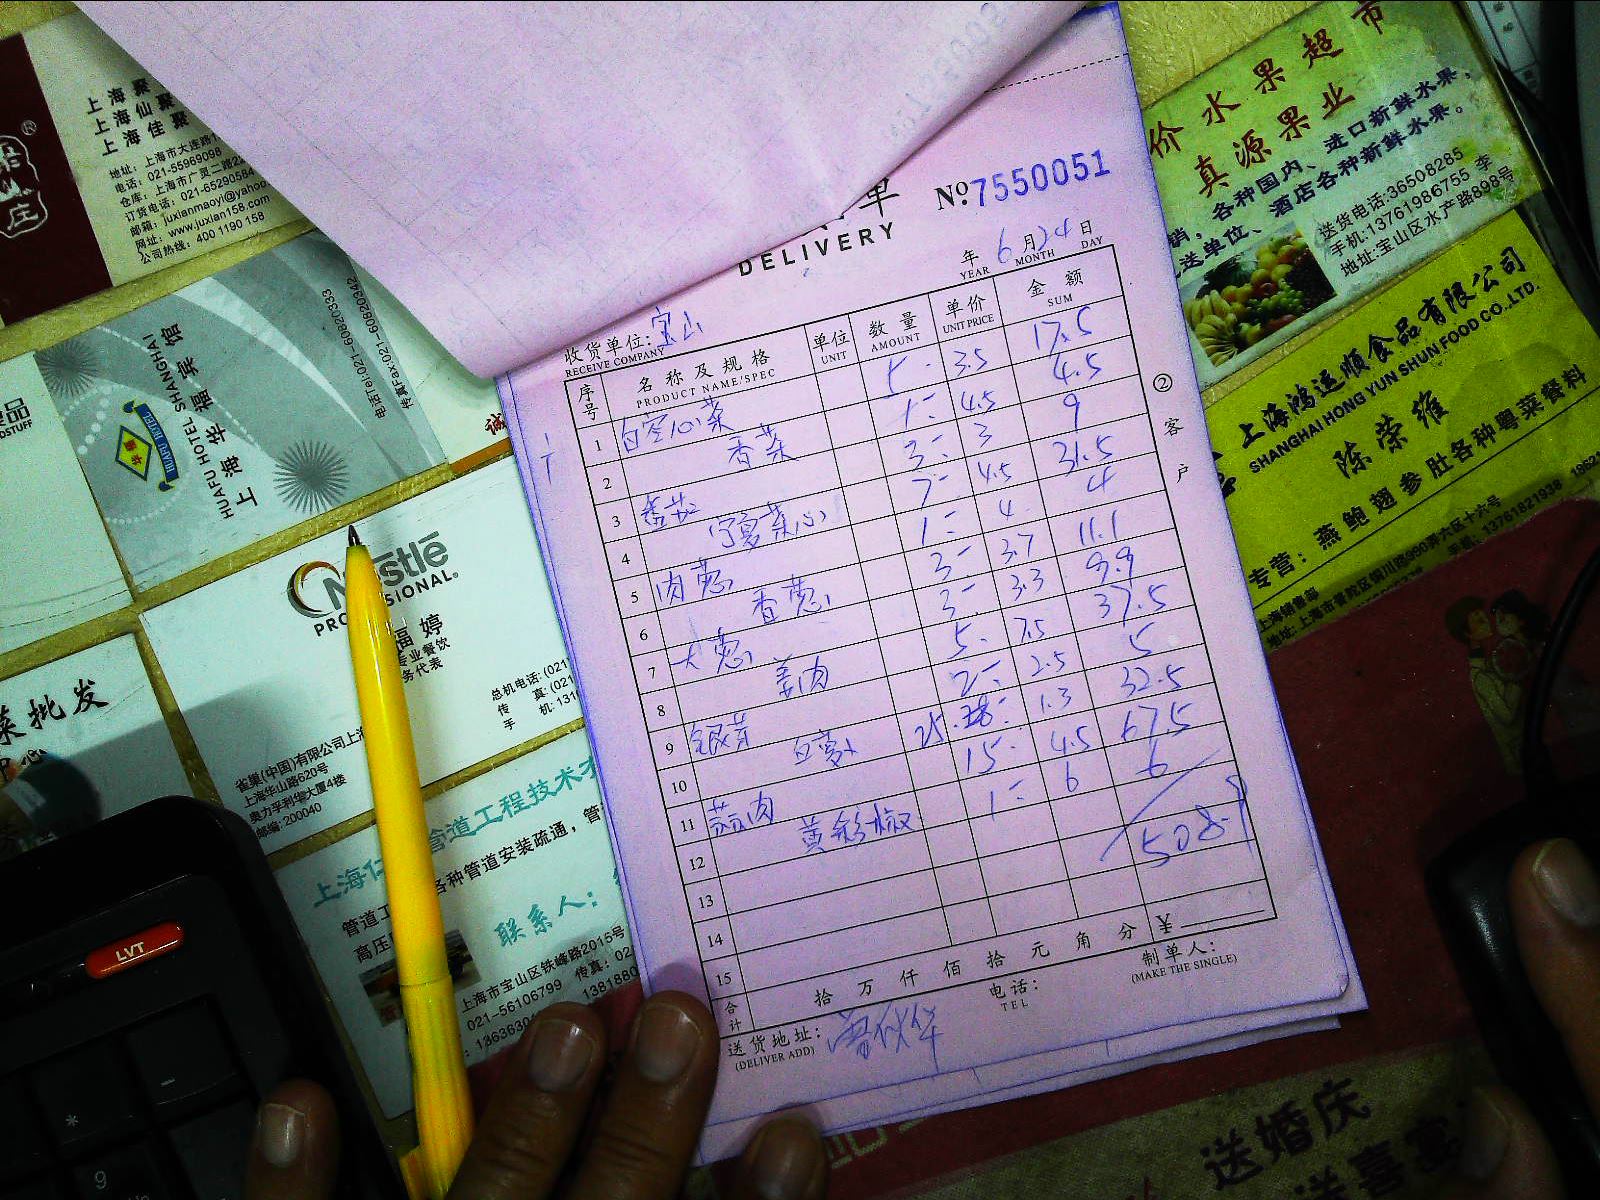 上海聚
上海仙聚
上海佳聚
地址: 上海市大连路
电话: 021-55969098
仓库: 上海市广灵二路
订货电话: 021-65290584
邮箱: juxianmaoyi@yahoo
网址: www.juxian158.com
公司热线: 400 1190 158
HUAFU HOTEL SHANGHAI
上海华福宾馆
HUAFU HOTEL
电话Tel:021-60820333
传真Fax:021-60820342
诚
Nestlé
PROFESSIONAL
福婷
专业餐饮
务代表
总机电话: (021
传 真: (021
手 机: 1310
雀巢(中国)有限公司上海
上海华山路620号
奥力孚利华大厦4楼
邮编: 200040
菜批发
管道工程技术
各种管道安装疏通,管
联系人:
上海市宝山区铁峰路2015号 传真: 02
021-56106799 1381880
LVT
单
DELIVERY
No.7550051
年 6 月 24 日
YEAR MONTH DAY
收货单位: 宝山
RECEIVE COMPANY
序号 名称及规格 单位 数量 单价 金额
PRODUCT NAME/SPEC UNIT AMOUNT UNIT PRICE SUM
1 白空心菜 5 3.5 17.5
2 香菜 1 4.5 4.5
3 番茄 3 3 9
4 宁夏菜心 7 4.5 31.5
5 肉葱 1 4 4
6 香葱 3 3.7 11.1
7 大葱 3 3.3 9.9
8 姜肉 5 7.5 37.5
9 银芽 2 2.5 5
10 白萝卜 25 1.3 32.5
11 蒜肉 15 4.5 67.5
12 黄彩椒 1 6 6
13
14
15
508.9
合计 拾 万 仟 佰 拾 元 角 分 ¥
送货地址:
(DELIVER ADD)
电话:
TEL
制单人:
(MAKE THE SINGLE)
② 客户
价水果超市
真源果业
各种国内、进口新鲜水果,
送单位、酒店各种新鲜水果。
送货电话:36508285
手机:13761986755 李
地址:宝山区水产路898号
上海鸿运顺食品有限公司
SHANGHAI HONG YUN SHUN FOOD CO.,LTD.
陈荣维
专营: 燕鲍翅参肚各种粤菜餐料
手机: 13761821938
送婚庆